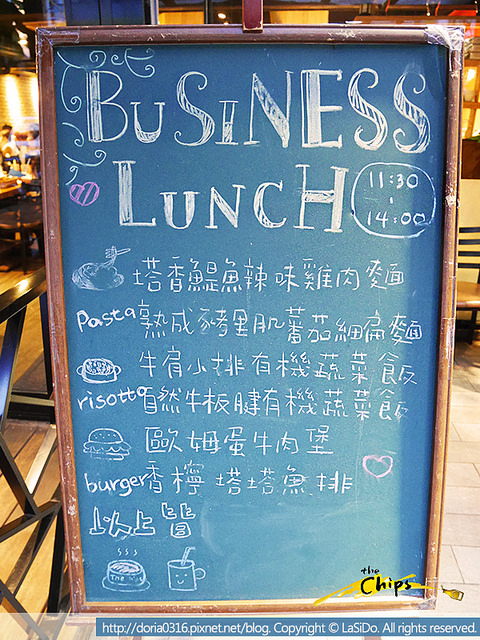 BUSINESS
LUNCH
11:30
-
14:00
塔香鯷魚辣味雞肉麵
Pasta 熟成豬里肌蕃茄細扁麵
牛肩小排有機蔬菜飯
risotto 自然牛板腱有機蔬菜飯
歐姆蛋牛肉堡
burger 香檸塔塔魚排
以上皆
the Chips
http://doria0316.pixnet.net/blog. Copyright © LaSiDo. All rights reserved.